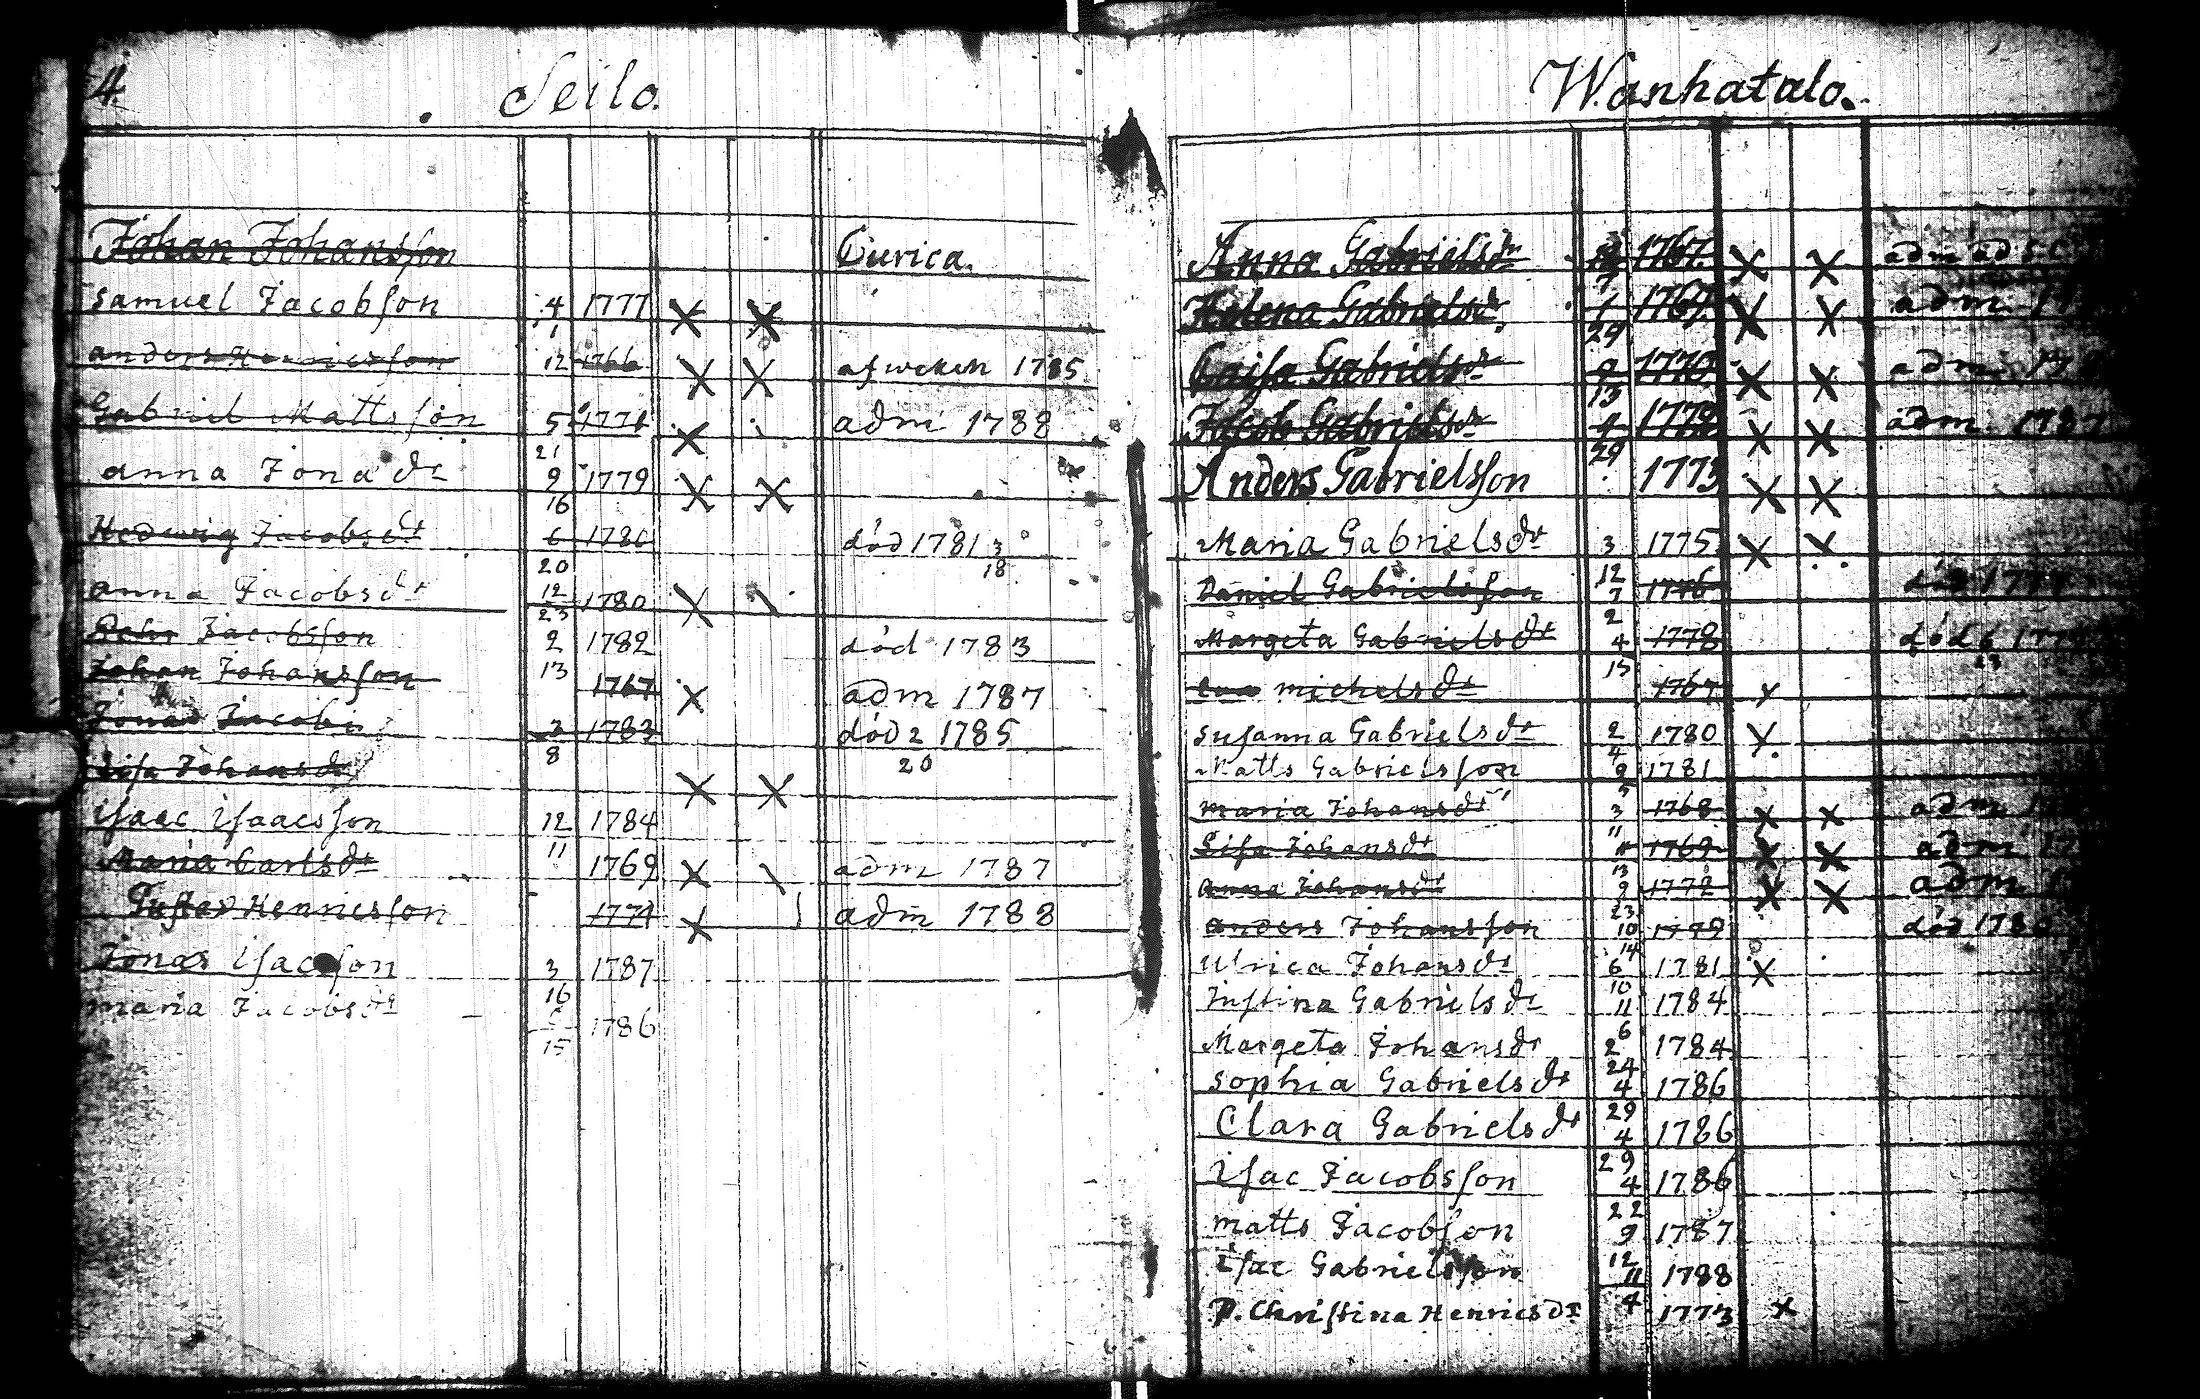 4.
Seilo.
Johan Johansson Curica.
Samuel Jacobsson 4/1 1777 X X
anders Henricsson 12 1766 X X afweken 1785
Gabriel Mattsson 5/21 1771 X adm 1788
anna Jona dr 9/16 1779 X X
Hedwig Jacobsdr 6/20 1780 död 1781 3/18
anna Jacobsdr 12/23 1780 X \
Petr Jacobsson 2/13 1782 död 1783
Johan Johansson 1767 X adm 1787
Jonas Jacobs 2/8 1783 död 2/20 1785
Lisa Johansdr X X
Isaac Isaacsson 12/11 1784
Maria Carlsdr 1769 X \ adm 1787
Gustav Henricsson 1771 X adm 1788
Jonas Isacsson 3/16 1787
maria Jacobsdr 1786
Wanhatalo.
Anna Gabrielsdr 1767 X X adm ad S.C.
Helena Gabrielsdr 1/29 1767 X X adm
Caisa Gabrielsdr 9/13 1770 X X adm
Jacob Gabriels 4/29 1772 X X adm. 1787
Anders Gabrielsson 1773 X X
Maria Gabrielsdr 3/12 1775 X X
Daniel Gabrielsson 7/2 1776 död 177
Margeta Gabrielsdr 4/15 1778 död 6/23 177
Eva michelsdr 1767 X
Susanna Gabrielsdr 2/4 1780 X
Matts Gabrielsson 9/5 1781
maria Johansdr 3/11 1768 X X adm
Lisa Johansdr 11/13 1769 X X adm
Anna Johansdr 9/23 1772 X X adm
anders Johansson 10/14 1779 död 1780
Ulrica Johansdr 6/10 1781 X
Justina Gabrielsdr 11/6 1784
Margeta Johansdr 2/24 1784
Sophia Gabrielsdr 4/29 1786
Clara Gabrielsdr 4/29 1786
Isac Jacobsson 4/22 1786
matts Jacobsson 9/12 1787
Isac Gabrielsson 11/4 1788
P. Christina Henricsdr 1773 X